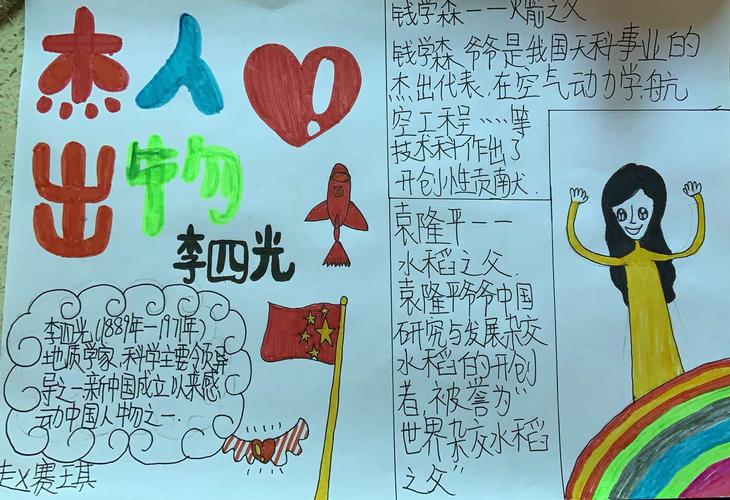 杰人
出物
李四光
李四光(1889年—1971年)
地质学家,科学主要领导
导之一新中国成立以来感
动中国人物之一.
赵X赛琪
钱学森——火箭之父
钱学森爷爷是我国天科事业的
杰出代表.在空气动力学.航
空工程……等
技术科作出了
开创小性贡献.
袁隆平——
水稻之父.
袁隆平爷爷中国
研究与发展杂交
水稻的开创
者,被誉为“
世界杂交水稻
之父”